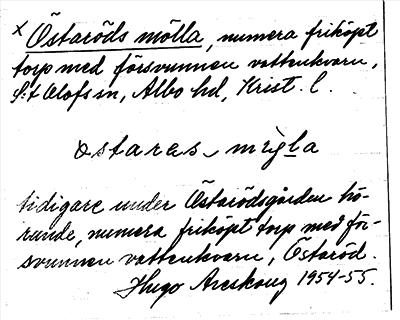 x Östaröds mölla, numera friköpt
torp med försvunnen vattenkvarn,
S:t Olofs sn, Albo hd, Krist. l.
östaras mìg̀la
tidigare under Östarödsgården hö-
rande, numera friköpt torp med för-
svunnen vattenkvarn, Östaröd.
Hugo Areskoug 1954-55.